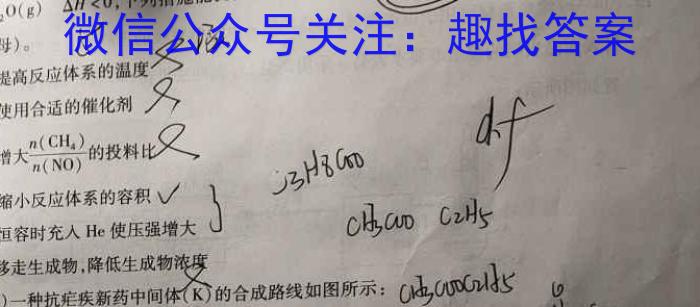 ₂O(g) ΔH<0,下列措施能
微信公众号关注：趣找答案
母)。
提高反应体系的温度
使用合适的催化剂
增大n(CH₄)/n(NO)的投料比
缩小反应体系的容积 ✓
恒容时充入 He 使压强增大
CH₃COO C₂H₅
移走生成物,降低生成物浓度
)一种抗疟疾新药中间体(K)的合成路线如图所示:
CH₃COOC₂H₅